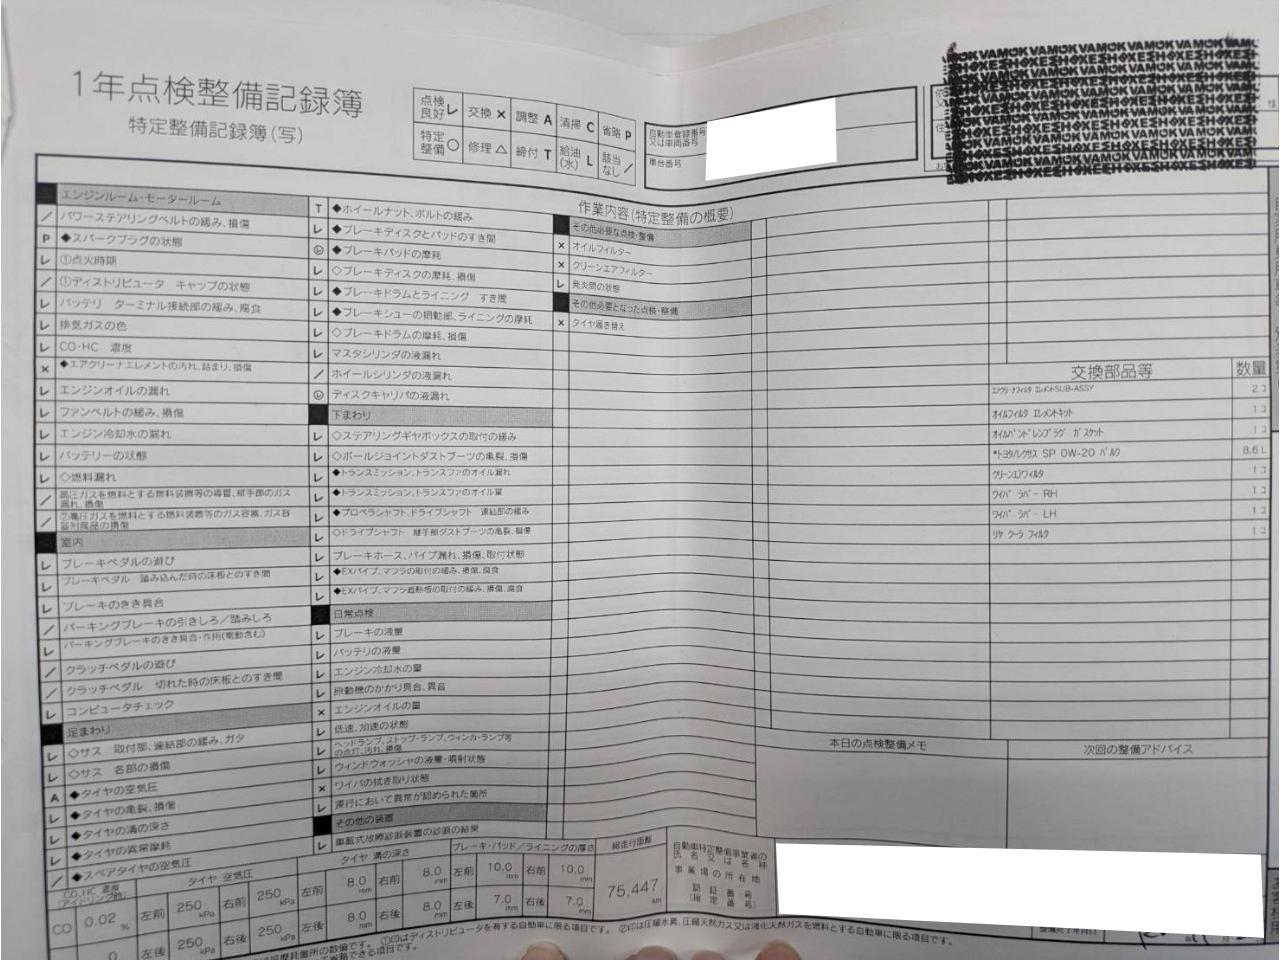 1年点検整備記録簿
特定整備記録簿(写)
点検良好 レ 交換 × 調整 A 清掃 C 省略 P
特定整備 ○ 修理 △ 締付 T 給油(水) L 該当なし /
自動車登録番号又は車両番号
車台番号
エンジンルーム・モータールーム
/ パワーステアリングベルトの緩み、損傷
P ◆スパークプラグの状態
レ ①点火時期
/ ①ディストリビュータ キャップの状態
レ バッテリ ターミナル接続部の緩み、腐食
レ 排気ガスの色
レ CO・HC 濃度
× ◆エアクリーナエレメントの汚れ、詰まり、損傷
レ エンジンオイルの漏れ
レ ファンベルトの緩み、損傷
レ エンジン冷却水の漏れ
レ バッテリーの状態
レ ◇燃料漏れ
/ 高圧ガスを燃料とする燃料装置等の導管、継手部のガス漏れ、損傷
/ ②高圧ガスを燃料とする燃料装置等のガス容器、ガス容器附属品の損傷
室内
レ ブレーキペダルの遊び
レ ブレーキペダル 踏み込んだ時の床板とのすき間
レ ブレーキのきき具合
/ パーキングブレーキの引きしろ/踏みしろ
レ パーキングブレーキのきき具合・作用(電動含む)
/ クラッチペダルの遊び
/ クラッチペダル 切れた時の床板とのすき間
レ コンピュータチェック
足まわり
レ ◇サス 取付部、連結部の緩み、ガタ
レ ◇サス 各部の損傷
A ◆タイヤの空気圧
レ ◆タイヤの亀裂、損傷
レ ◆タイヤの溝の深さ
レ ◆タイヤの異常摩耗
/ ◆スペアタイヤの空気圧
T ◆ホイールナット、ボルトの緩み
レ ◆ブレーキディスクとパッドのすき間
◆ブレーキパッドの摩耗
レ ◇ブレーキディスクの摩耗、損傷
レ ◆ブレーキドラムとライニング すき間
レ ◆ブレーキシューの摺動部、ライニングの摩耗
レ ◇ブレーキドラムの摩耗、損傷
レ マスタシリンダの液漏れ
/ ホイールシリンダの液漏れ
ディスクキャリパの液漏れ
下まわり
レ ◇ステアリングギヤボックスの取付の緩み
レ ◇ボールジョイントダストブーツの亀裂、損傷
レ ◆トランスミッション、トランスファのオイル漏れ
レ ◆トランスミッション、トランスファのオイル量
レ ◆プロペラシャフト、ドライブシャフト 連結部の緩み
レ ◇ドライブシャフト 継手部ダストブーツの亀裂、損傷
レ ブレーキホース、パイプ漏れ、損傷、取付状態
レ ◆EXパイプ、マフラの取付の緩み、損傷、腐食
レ ◆EXパイプ、マフラ遮熱板の取付の緩み、損傷、腐食
日常点検
レ ブレーキの液量
レ バッテリの液量
レ エンジン冷却水の量
レ 原動機のかかり具合、異音
× エンジンオイルの量
レ 低速、加速の状態
レ ヘッドランプ、ストップ・ランプ、ウィンカ・ランプ等の点灯、汚れ、損傷
レ ウインドウォッシャの液量・噴射状態
× ワイパの拭き取り状態
レ 運行において異常が認められた箇所
その他の装置
レ 車載式故障診断装置の診断の結果
作業内容(特定整備の概要)
その他必要な点検・整備
× オイルフィルター
× クリーンエアフィルター
レ 発炎筒の状態
その他必要となった点検・整備
× タイヤ履き替え
交換部品等 数量
エアクリーナフィルタ エレメントSUB-ASSY 2コ
オイルフィルタ エレメントキット 1コ
オイルパンドレンプラグ ガスケット 1コ
*トヨタ/レクサス SP 0W-20 バルク 8.6L
クリーンエアフィルタ 1コ
ワイパ ラバー RH 1コ
ワイパ ラバー LH 1コ
リヤ クーラ フィルタ 1コ
本日の点検整備メモ 次回の整備アドバイス
CO、HC 濃度(アイドリング時)
CO 0.02 %
0
タイヤ 空気圧
左前 250 kPa 右前 250 kPa
左後 250 kPa 右後 250 kPa
タイヤ 溝の深さ
左前 8.0 mm 右前 8.0 mm
左後 8.0 mm 右後 8.0 mm
ブレーキ・パッド/ライニングの厚さ
左前 10.0 mm 右前 10.0 mm
左後 7.0 mm 右後 7.0 mm
総走行距離
75,447 km
自動車特定整備事業者の氏名又は名称
事業場の所在地
認証番号
(指定番号)
①印はディストリビュータを有する自動車に限る項目です。 ②印は圧縮水素、圧縮天然ガス又は液化天然ガスを燃料とする自動車に限る項目です。